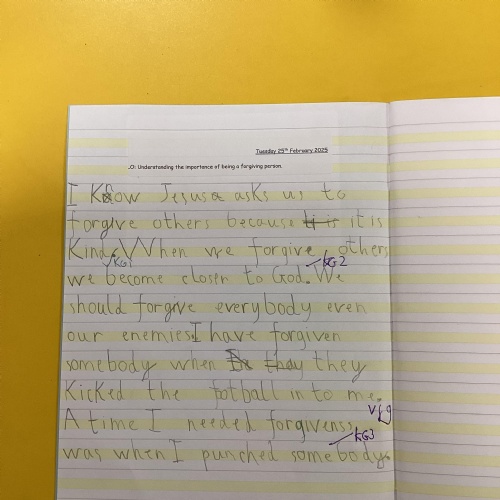 Tuesday 25th February 2025
LO: Understanding the importance of being a forgiving person.
I Know Jesus asks us to
forgive others because it is it is
Kind. When we forgive others
KG1
KG2
we become closer to God. We
should forgive everybody even
our enemies. I have forgiven
somebody when they they
Kicked the fotball in to me.
vfg
A time I needed forgivenss
KG3
was when I punched somebody.